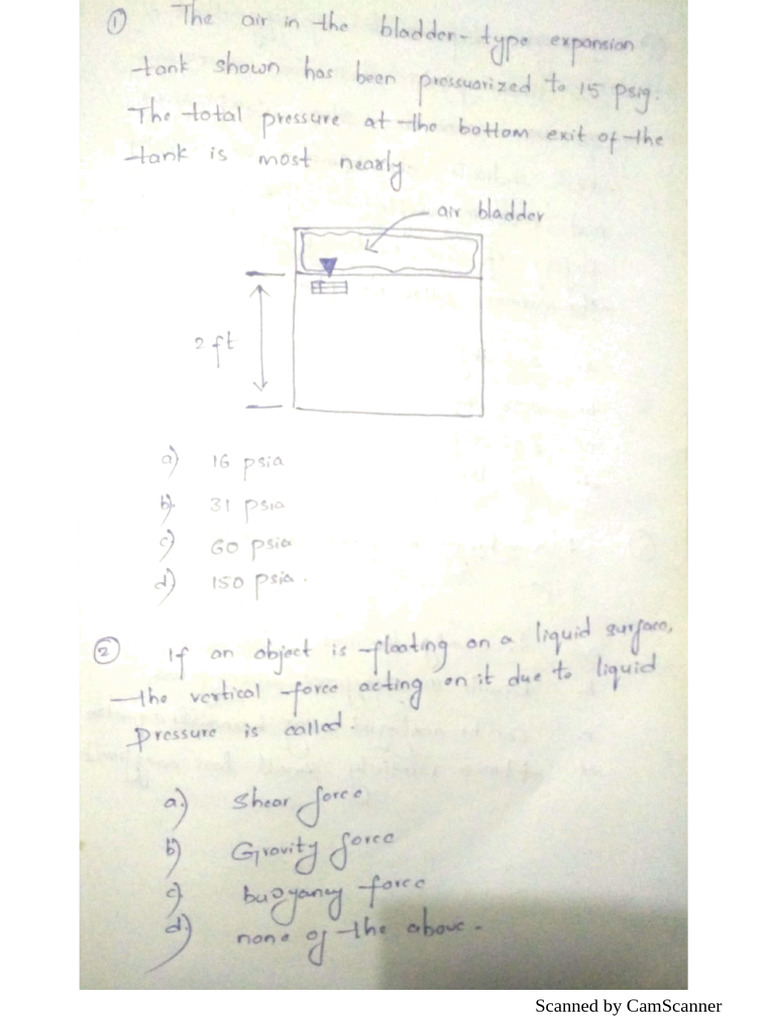 ① The air in the bladder-type expansion
tank shown has been pressuarized to 15 psig.
The total pressure at the bottom exit of the
tank is most nearly
air bladder
2 ft
a) 16 psia
b) 31 psia
c) 60 psia
d) 150 psia.
② If an object is floating on a liquid surface,
the vertical force acting on it due to liquid
pressure is called.
a) Shear force
b) Gravity force
c) buoyancy force
d) none of the above.
Scanned by CamScanner